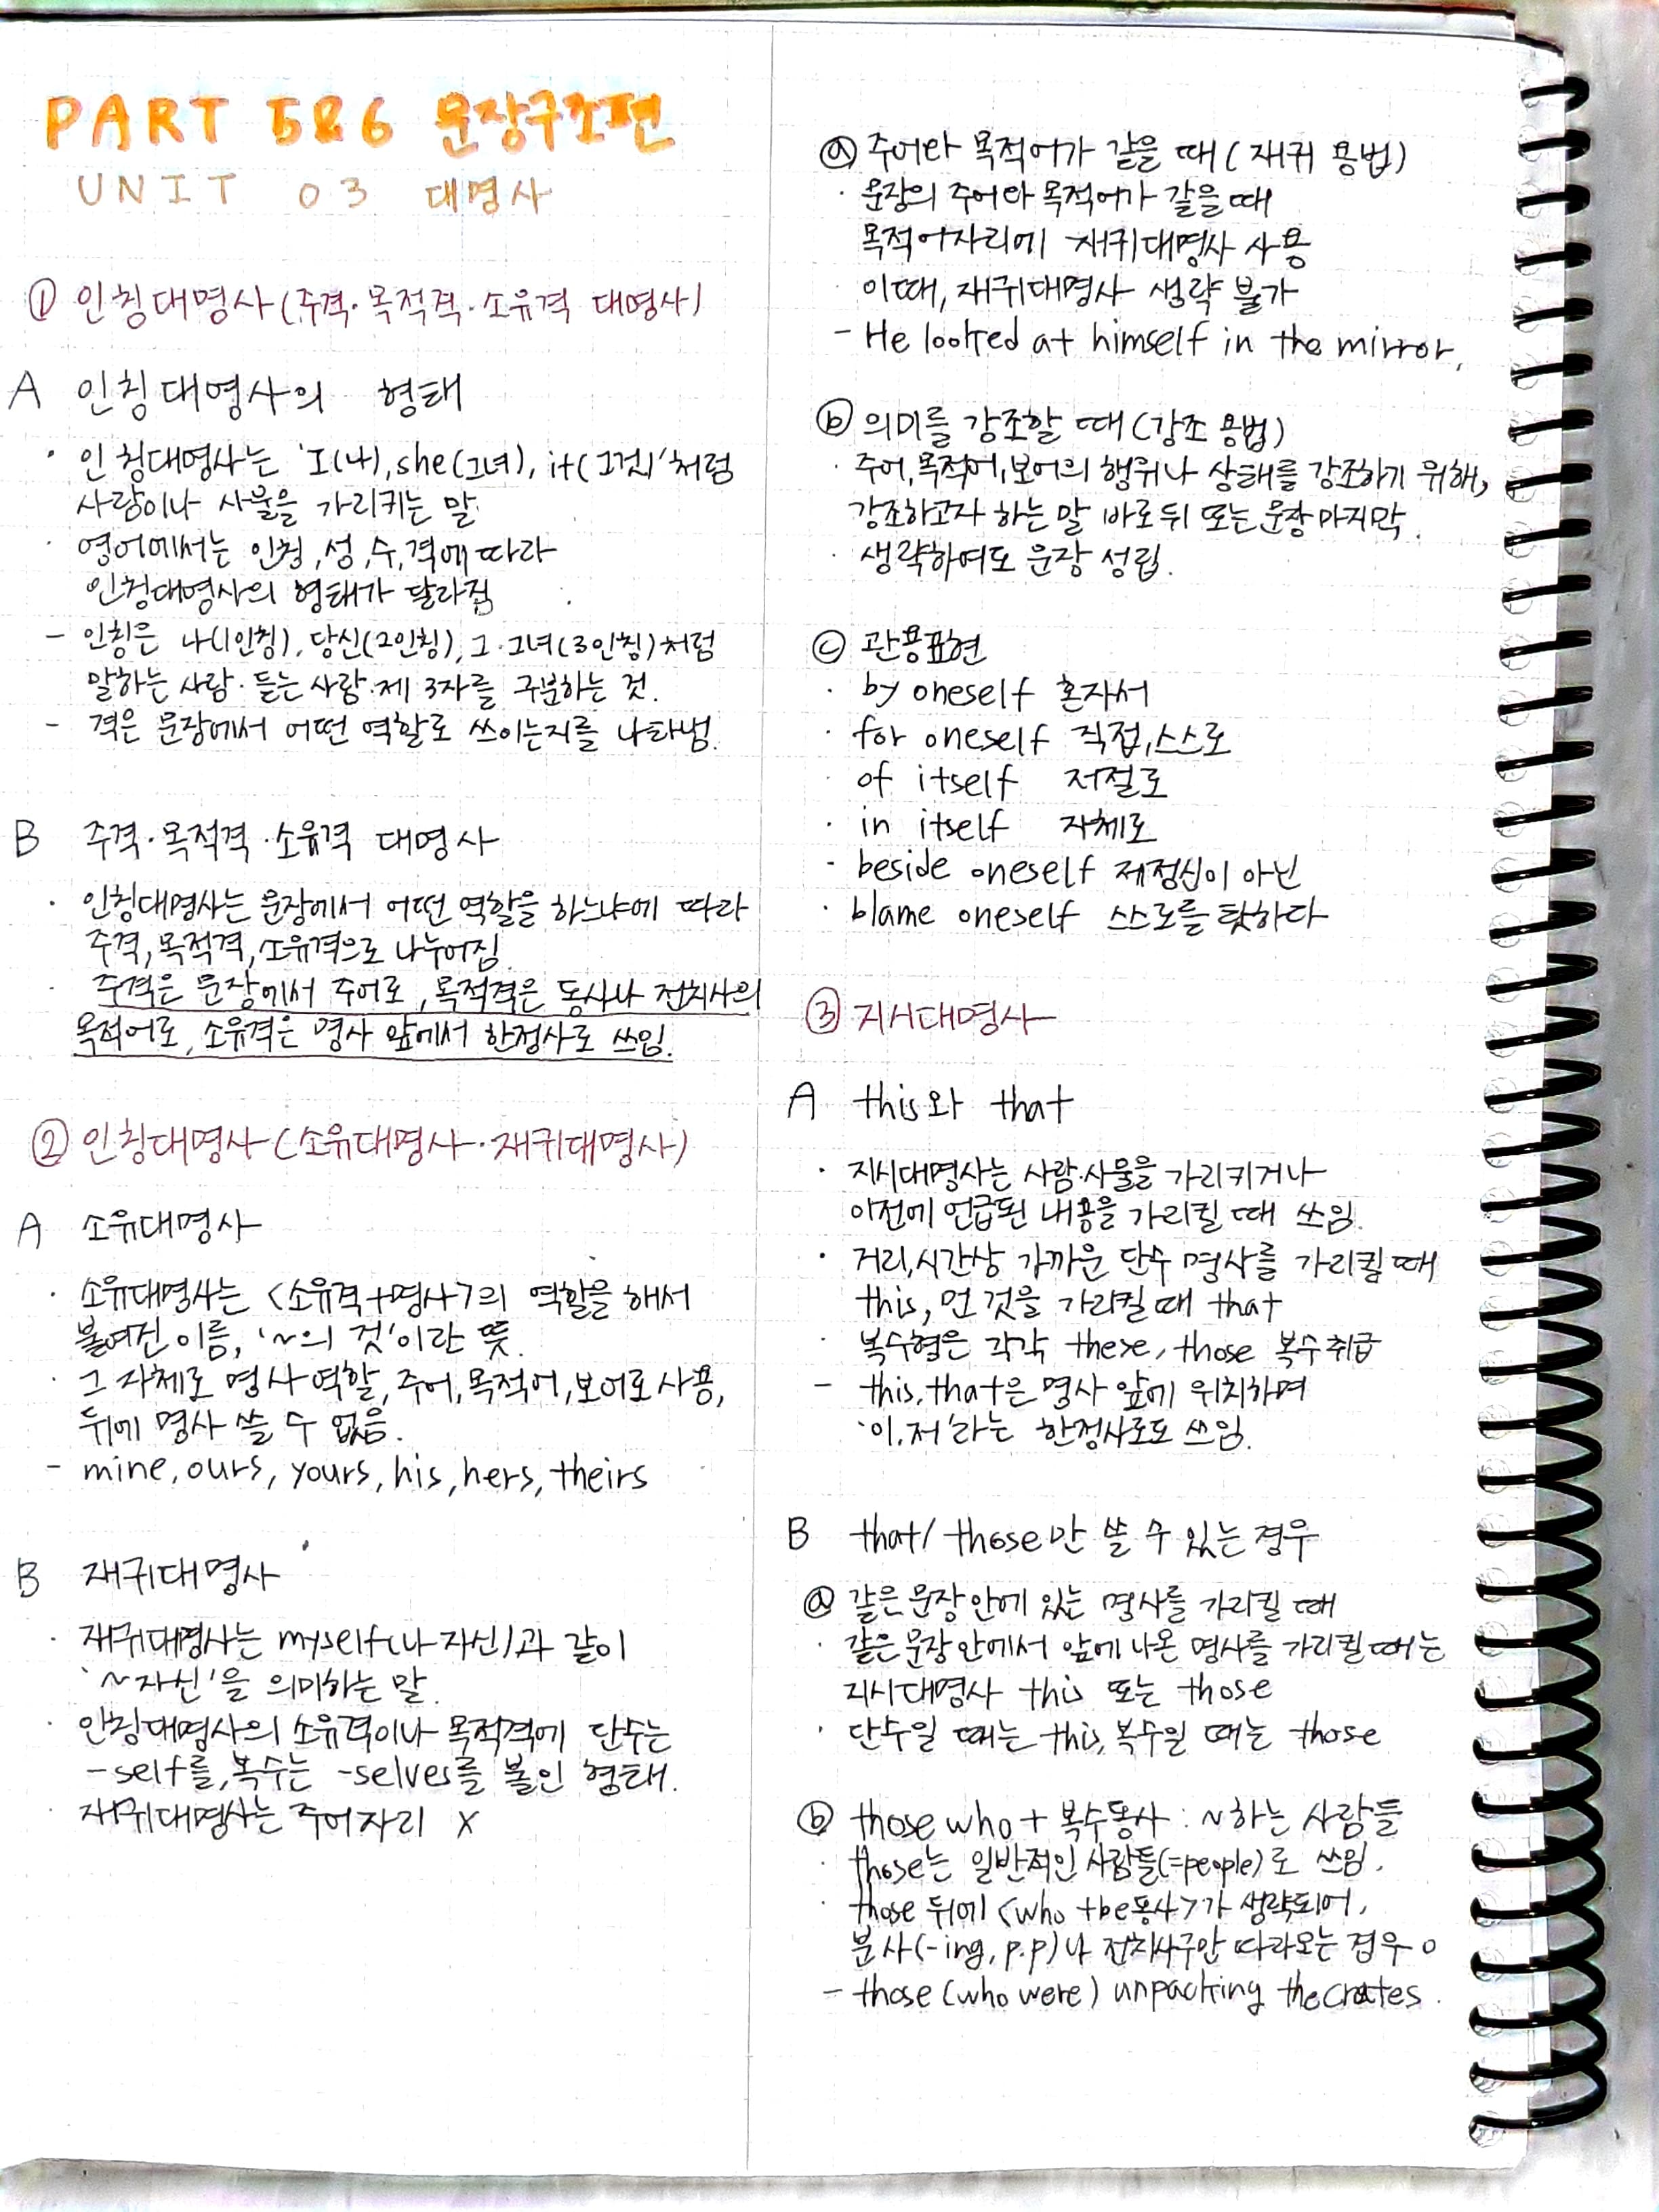 PART 5&6 문장구조편
UNIT 03 대명사
① 인칭대명사(주격·목적격·소유격 대명사)
A 인칭대명사의 형태
· 인칭대명사는 'I(나), she(그녀), it(그것)'처럼
사람이나 사물을 가리키는 말
· 영어에서는 인칭, 성, 수, 격에 따라
인칭대명사의 형태가 달라짐
- 인칭은 나(1인칭), 당신(2인칭), 그·그녀(3인칭)처럼
말하는 사람·듣는 사람·제 3자를 구분하는 것.
- 격은 문장에서 어떤 역할로 쓰이는지를 나타냄.
B 주격·목적격·소유격 대명사
· 인칭대명사는 문장에서 어떤 역할을 하느냐에 따라
주격, 목적격, 소유격으로 나누어짐.
· 주격은 문장에서 주어로, 목적격은 동사나 전치사의
목적어로, 소유격은 명사 앞에서 한정사로 쓰임.
② 인칭대명사(소유대명사·재귀대명사)
A 소유대명사
· 소유대명사는 <소유격+명사>의 역할을 해서
붙여진 이름, '~의 것'이란 뜻.
· 그 자체로 명사 역할, 주어, 목적어, 보어로 사용,
뒤에 명사 쓸 수 없음.
- mine, ours, yours, his, hers, theirs
B 재귀대명사
· 재귀대명사는 myself(나 자신)과 같이
'~자신'을 의미하는 말.
· 인칭대명사의 소유격이나 목적격에 단수는
-self를, 복수는 -selves를 붙인 형태.
· 재귀대명사는 주어자리 X
ⓐ 주어와 목적어가 같을 때(재귀 용법)
· 문장의 주어와 목적어가 같을 때
목적어자리에 재귀대명사 사용
이때, 재귀대명사 생략 불가
- He looked at himself in the mirror.
ⓑ 의미를 강조할 때(강조 용법)
· 주어, 목적어, 보어의 행위나 상태를 강조하기 위해,
강조하고자 하는 말 바로 뒤 또는 문장 마지막.
· 생략하여도 문장 성립.
ⓒ 관용표현
· by oneself 혼자서
· for oneself 직접, 스스로
· of itself 저절로
· in itself 자체로
· beside oneself 제정신이 아닌
· blame oneself 스스로를 탓하다
③ 지시대명사
A this와 that
· 지시대명사는 사람·사물을 가리키거나
이전에 언급된 내용을 가리킬 때 쓰임.
· 거리, 시간상 가까운 단수 명사를 가리킬 때
this, 먼 것을 가리킬 때 that
· 복수형은 각각 these, those 복수 취급
- this, that은 명사 앞에 위치하며
'이, 저'라는 한정사로도 쓰임.
B that/those만 쓸 수 있는 경우
ⓐ 같은 문장 안에 있는 명사를 가리킬 때
· 같은 문장 안에서 앞에 나온 명사를 가리킬 때는
지시대명사 this 또는 those
· 단수일 때는 this, 복수일 때는 those
ⓑ those who + 복수동사 : ~하는 사람들
· those는 일반적인 사람들(=people)로 쓰임.
· those 뒤에 <who +be동사>가 생략되어,
분사(-ing, p.p)나 전치사구만 따라오는 경우 o
- those (who were) unpacking the crates.